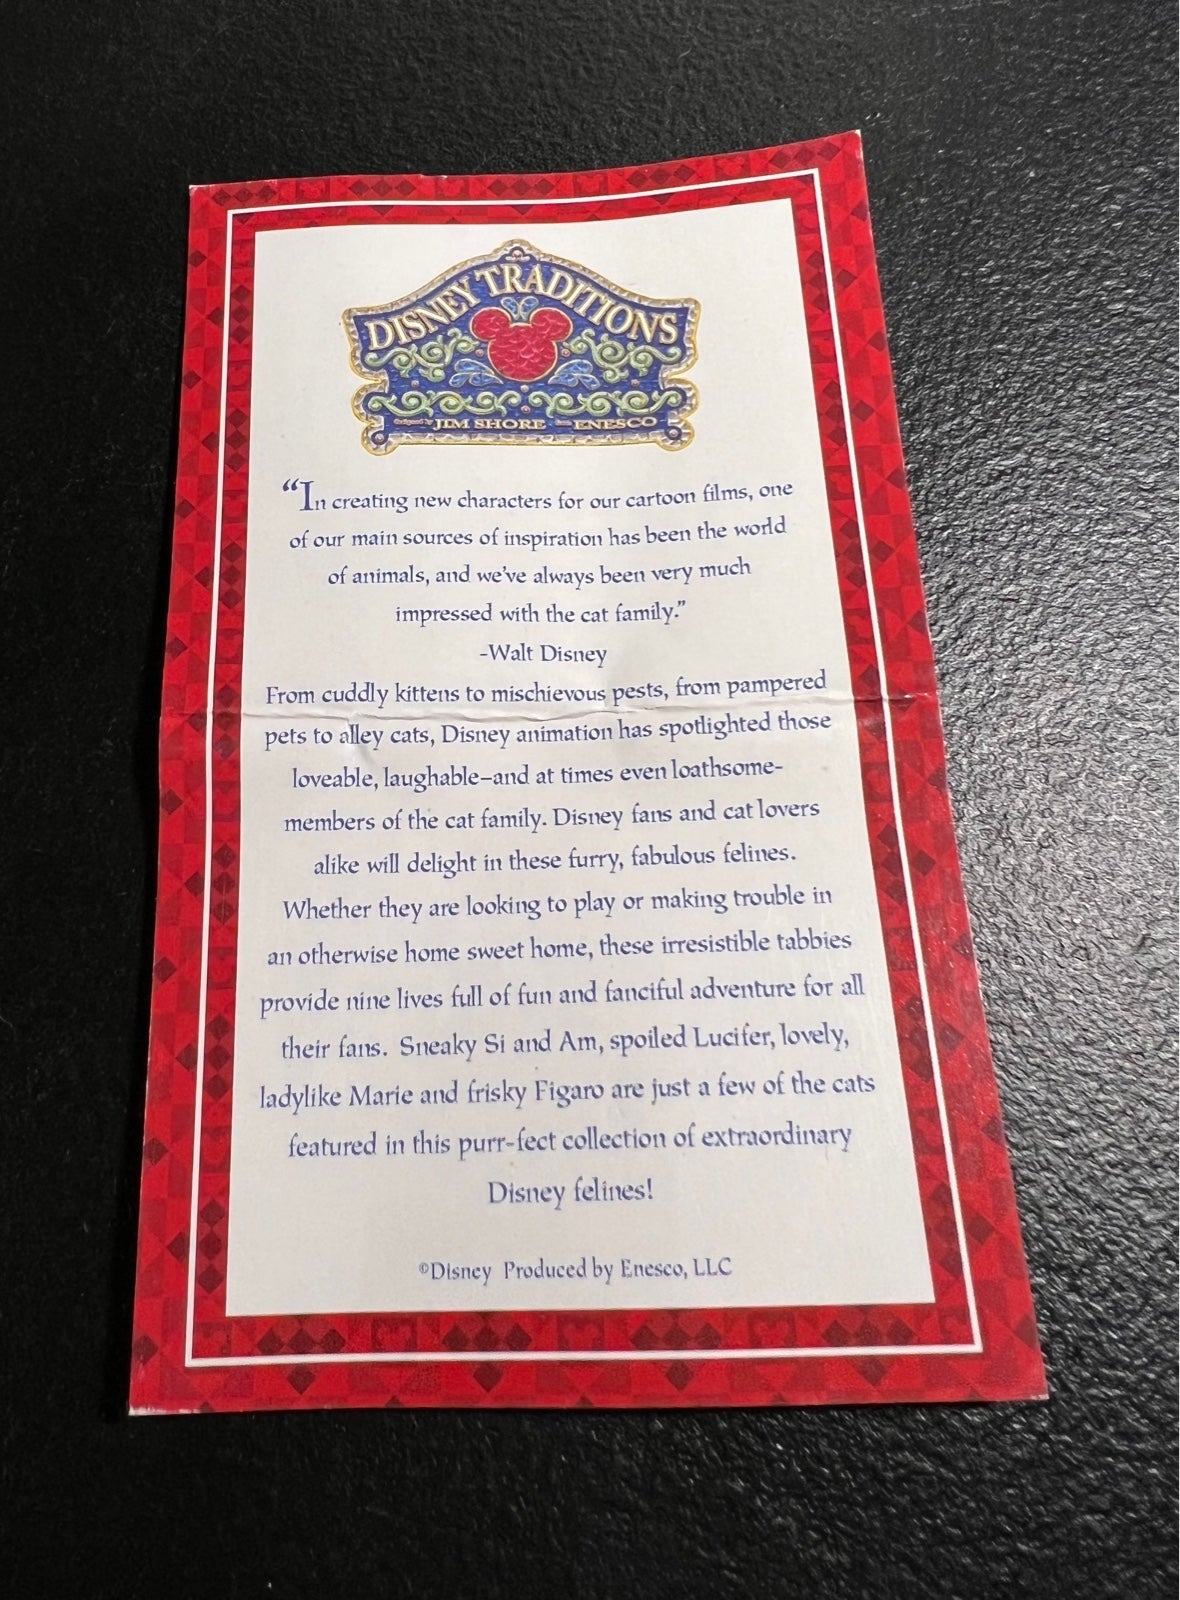 DISNEY TRADITIONS
designed by JIM SHORE from ENESCO
“In creating new characters for our cartoon films, one
of our main sources of inspiration has been the world
of animals, and we've always been very much
impressed with the cat family.”
-Walt Disney
From cuddly kittens to mischievous pests, from pampered
pets to alley cats, Disney animation has spotlighted those
loveable, laughable–and at times even loathsome-
members of the cat family. Disney fans and cat lovers
alike will delight in these furry, fabulous felines.
Whether they are looking to play or making trouble in
an otherwise home sweet home, these irresistible tabbies
provide nine lives full of fun and fanciful adventure for all
their fans. Sneaky Si and Am, spoiled Lucifer, lovely,
ladylike Marie and frisky Figaro are just a few of the cats
featured in this purr-fect collection of extraordinary
Disney felines!
©Disney Produced by Enesco, LLC